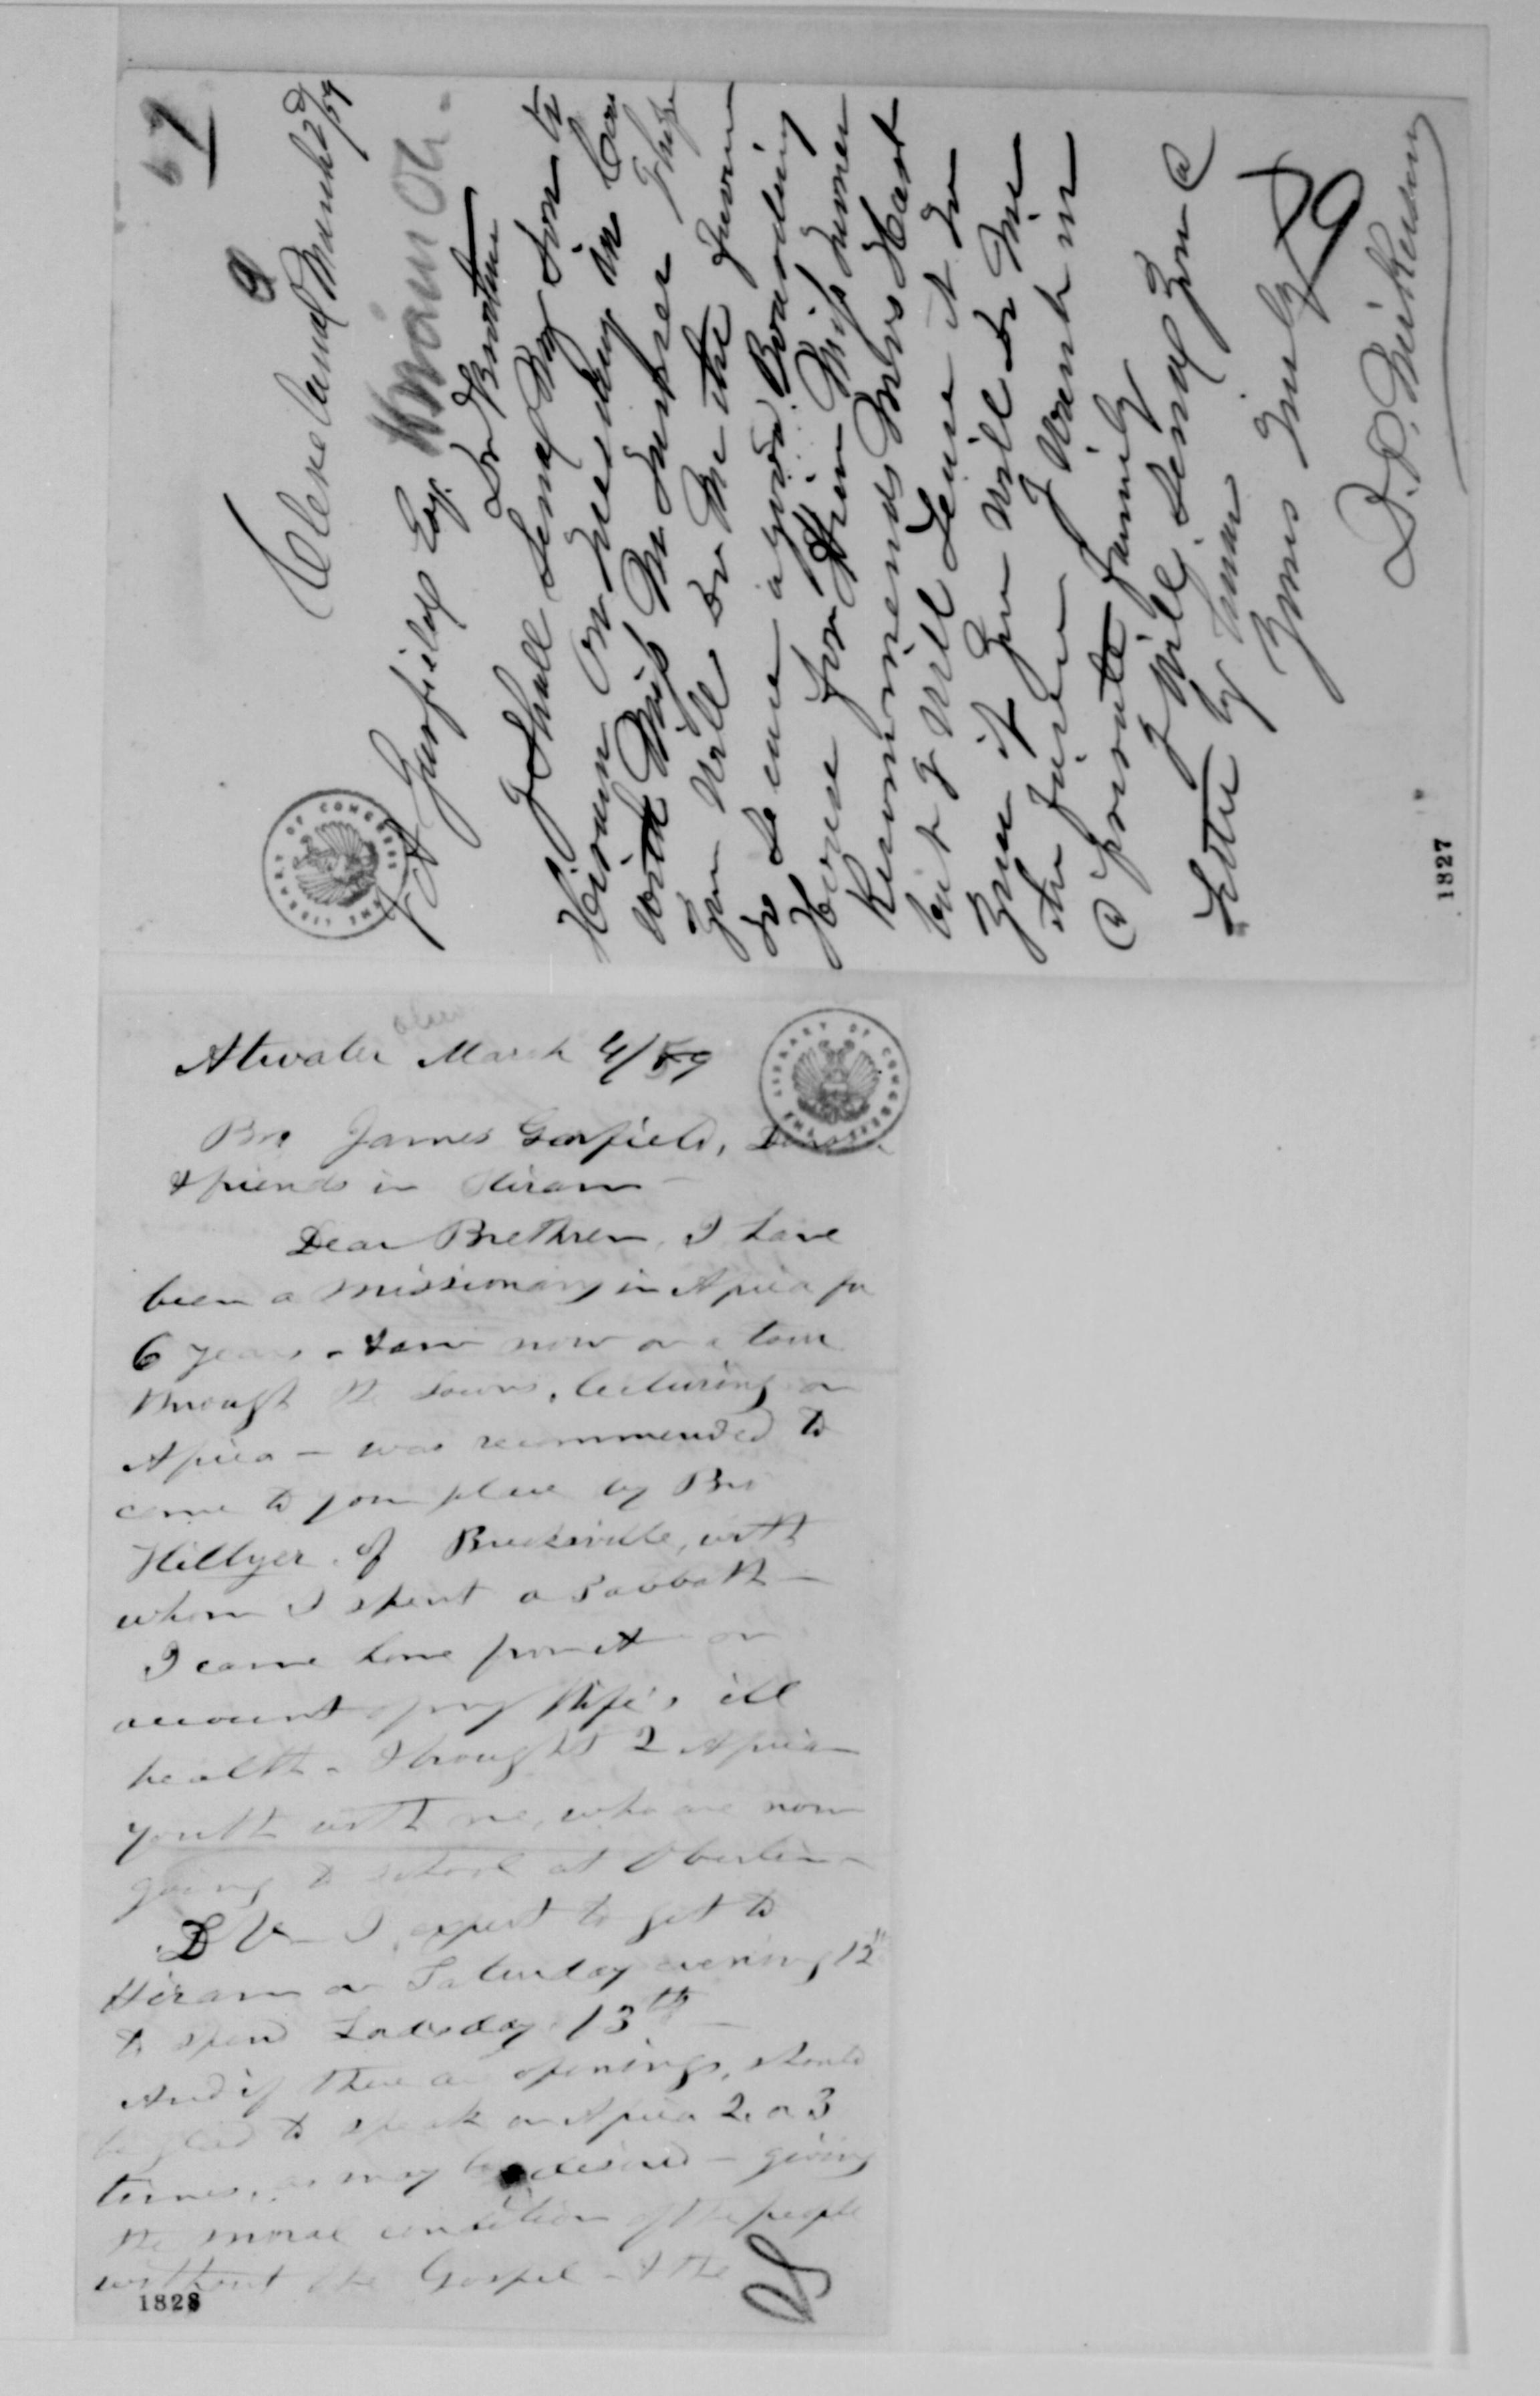 67
Cleveland March 2d/59
J A Garfield Esq. Hiram Oh.
Dr Brother
I Shall Send My Son to
Hiram On Tuesday in Care
with Miss M Turner
you Will do Me the favour
to Secure a good Boarding
House for Him Miss Turner
Recommends Mrs Hart
but I Will Leave it to
you if you Will do Me
the favour I Want in
a private family
I Will Send you a
Letter by Him
Yours Truly
1827
Atwater Ohio March 4/59
Bro James Garfield,
& friends in Hiram
Dear Brethren, I have
been a missionary in Africa for
6 years - & am now on a tour
through the towns, lecturing on
Africa - was recommended to
come to your place by Bro
Hillyer of Brecksville, with
whom I spent a Sabbath -
I came home from it on
account of my Wife's ill
health - & brought 2 African
youth with me, who are now
going to school at Oberlin -
D V - I expect to get to
Hiram on Saturday evening 12th
to spend Lordsday 13th -
And if there are openings, should
be glad to speak on Africa 2 or 3
times, as may be desired - giving
the moral condition of the people
without the Gospel - & the
1828
THE LIBRARY OF CONGRESS